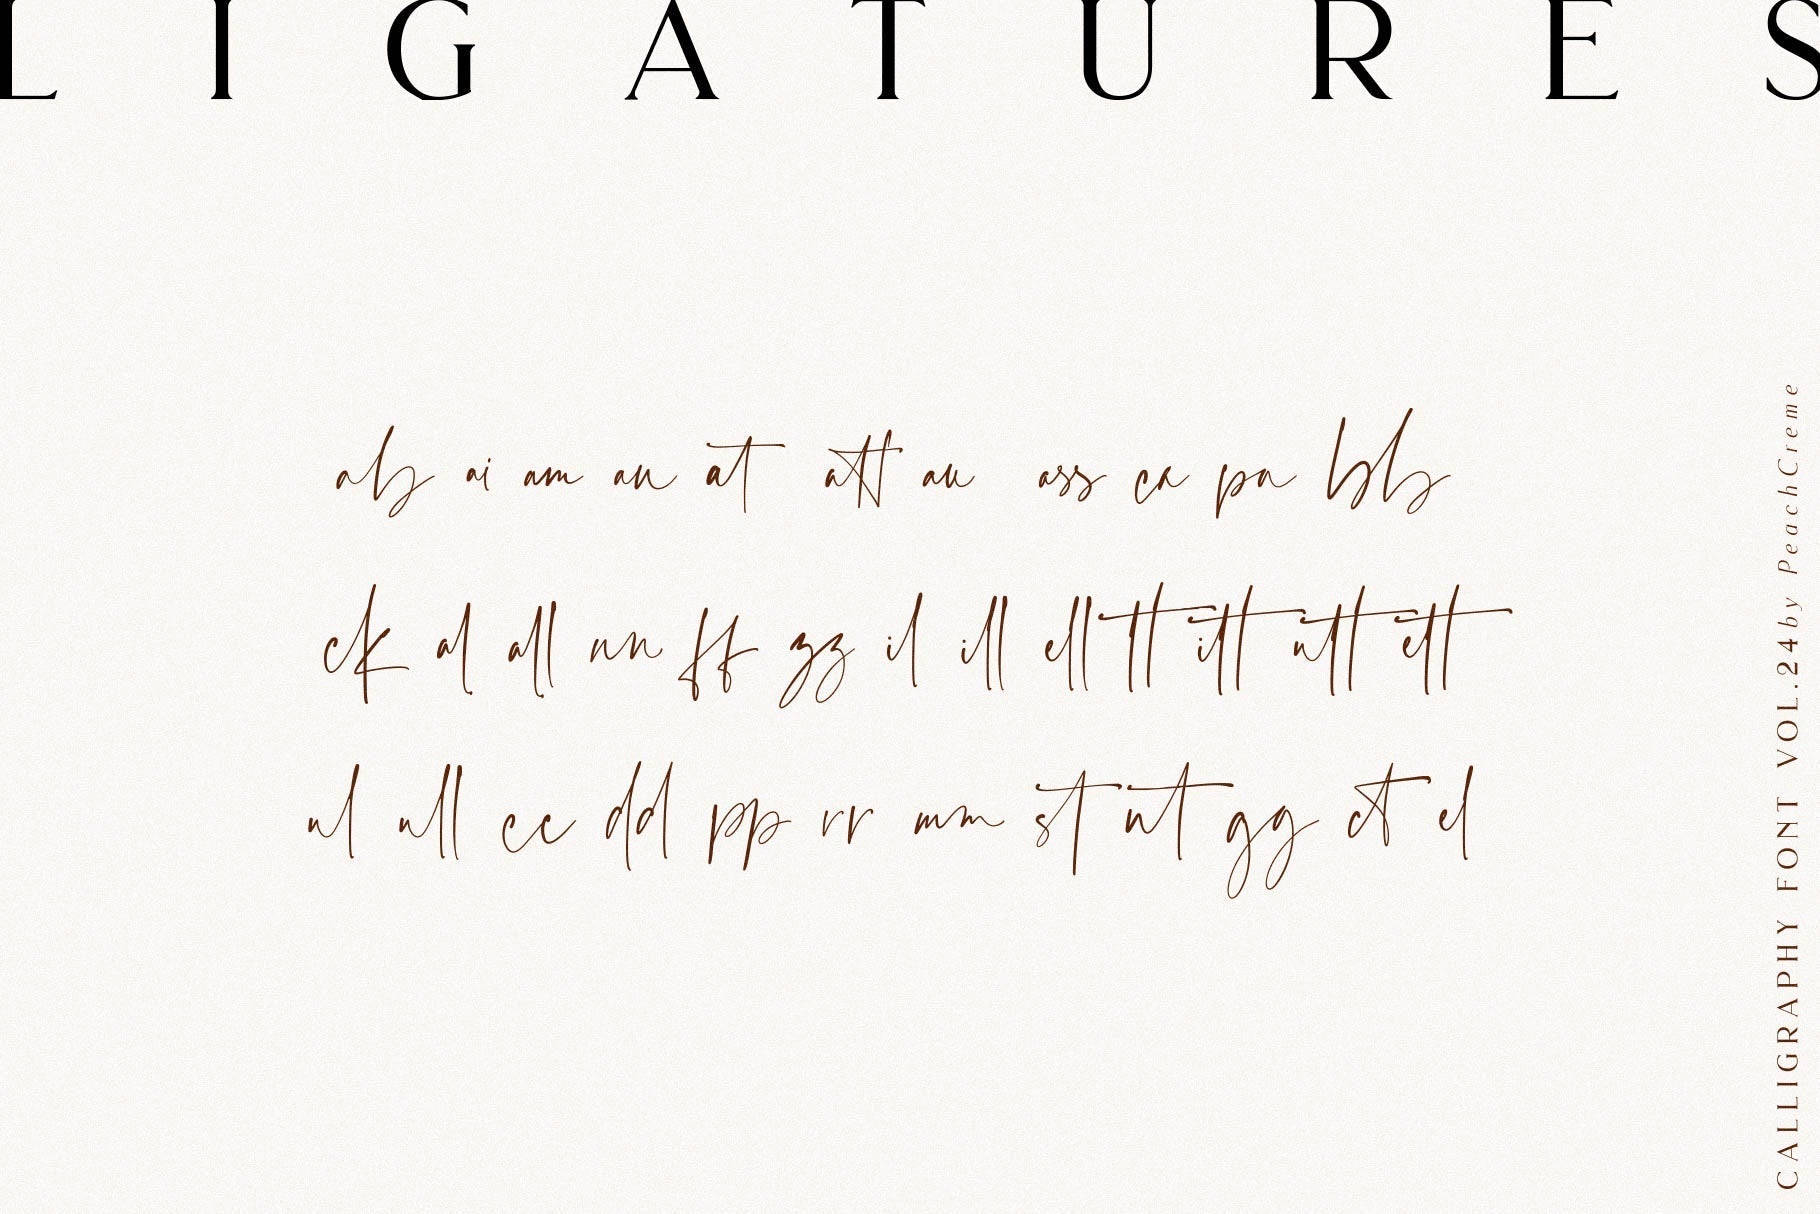 LIGATURES
ab ai am an at att au ass ca pa bb
ck al all nn ff zz il ill ell tt itt utt ett
ul ull cc dd pp rr mm st ut gg ct el
CALLIGRAPHY FONT VOL.24 by PeachCreme